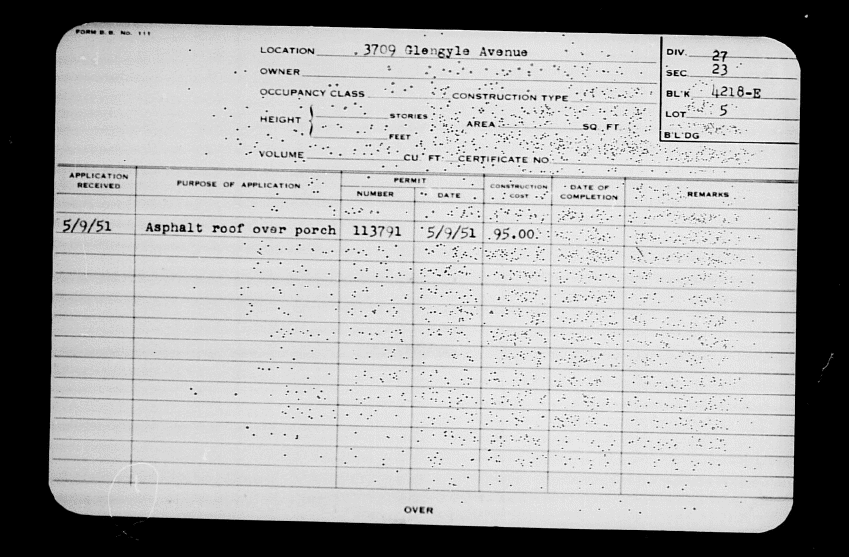 FORM B. B. NO. 111
LOCATION 3709 Glengyle Avenue
OWNER
OCCUPANCY CLASS CONSTRUCTION TYPE
HEIGHT STORIES
FEET
AREA SQ. FT.
VOLUME CU. FT. CERTIFICATE NO
DIV. 27
SEC. 23
BL'K 4218-E
LOT 5
B'L'DG
APPLICATION RECEIVED PURPOSE OF APPLICATION PERMIT NUMBER DATE CONSTRUCTION COST DATE OF COMPLETION REMARKS
5/9/51 Asphalt roof over porch 113791 5/9/51 95.00
OVER